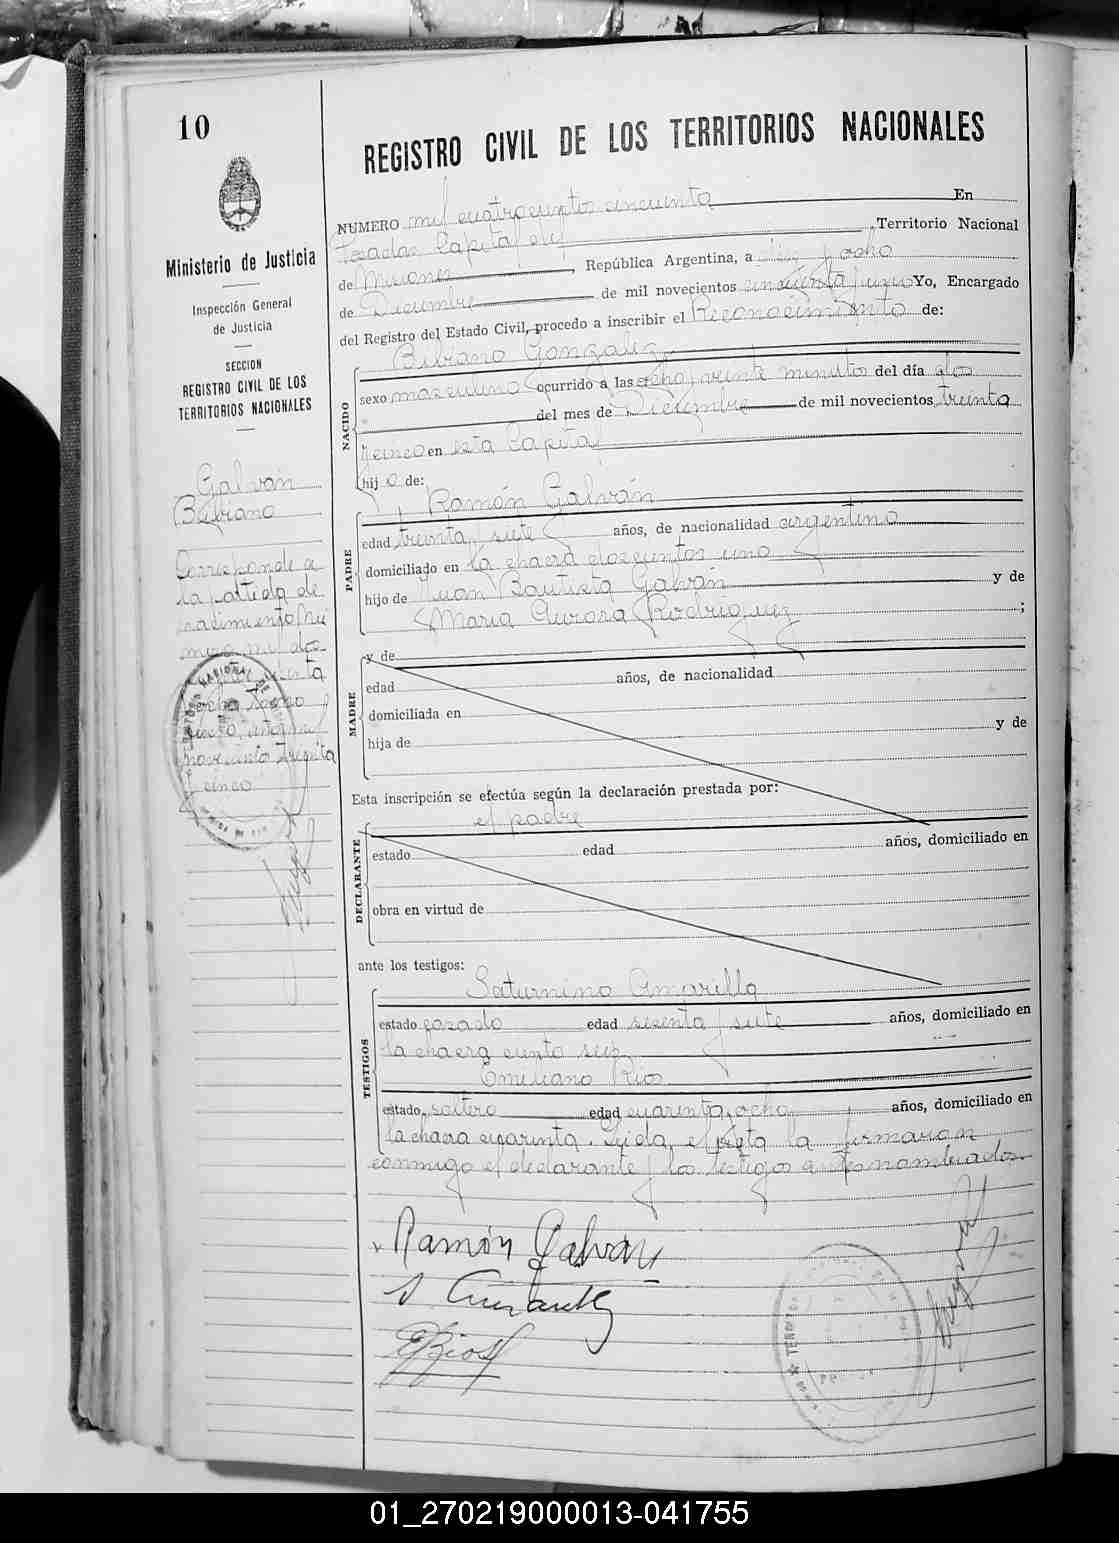 10
REGISTRO CIVIL DE LOS TERRITORIOS NACIONALES
Ministerio de Justicia
Inspección General
de Justicia
SECCION
REGISTRO CIVIL DE LOS
TERRITORIOS NACIONALES
Galván
Corresponde a
la partida de
novecientos treinta
y cinco
NUMERO mil cuatrocientos cincuenta En
Posadas Capital del Territorio Nacional
de Misiones, República Argentina, a diez y ocho
de Diciembre de mil novecientos cincuenta y uno Yo, Encargado
del Registro del Estado Civil, procedo a inscribir el Reconocimiento de:
González
NACIDO
sexo masculino ocurrido a las ocho y veinte minutos del día dos
del mes de Diciembre de mil novecientos treinta
y cinco en esta Capital
hijo de:
PADRE
Ramón Galván
edad treinta y siete años, de nacionalidad argentino
domiciliado en la chacra doscientos uno
hijo de Juan Bautista Galván y de
María Aurora Rodriguez ;
MADRE
y de
edad años, de nacionalidad
domiciliada en
hija de y de
Esta inscripción se efectúa según la declaración prestada por:
el padre
DECLARANTE
estado edad años, domiciliado en
obra en virtud de
ante los testigos:
TESTIGOS
Saturnino Amarilla
estado casado edad sesenta y siete años, domiciliado en
la chacra ciento seis
Emiliano Rios
estado soltero edad cuarenta y ocho años, domiciliado en
la chacra cuarenta. Leída el acta la firmaron
conmigo el declarante y los testigos antes nombrados
Ramón Galván
E Rios
01_270219000013-041755